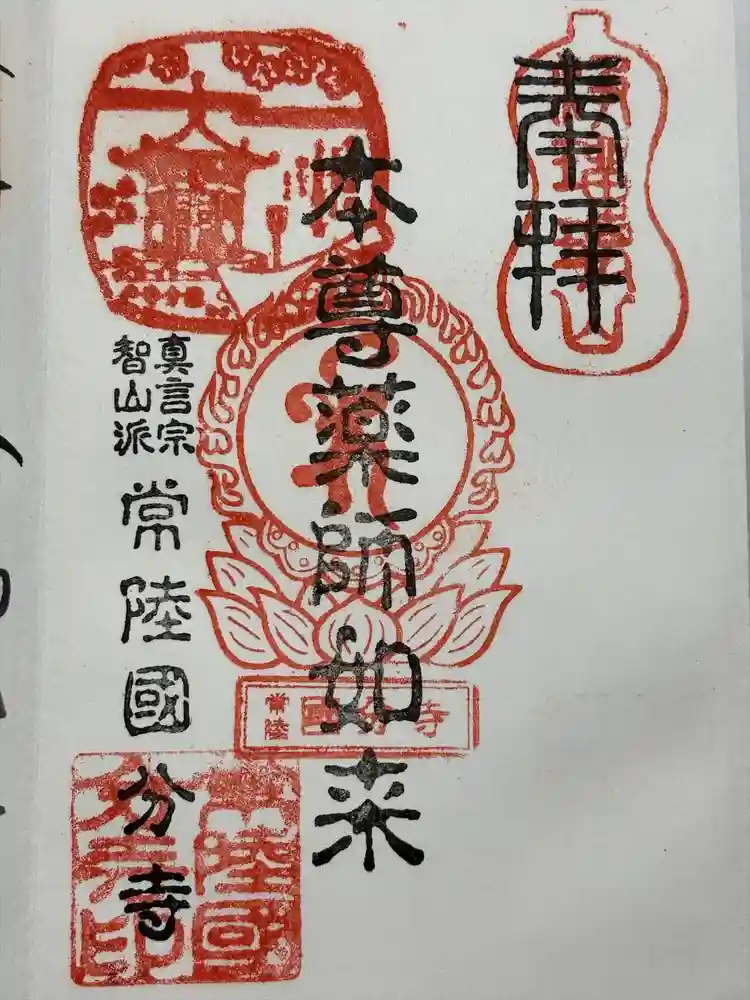 奉拝
本尊薬師如来
真言宗
智山派
常陸國分寺
常陸
國分寺